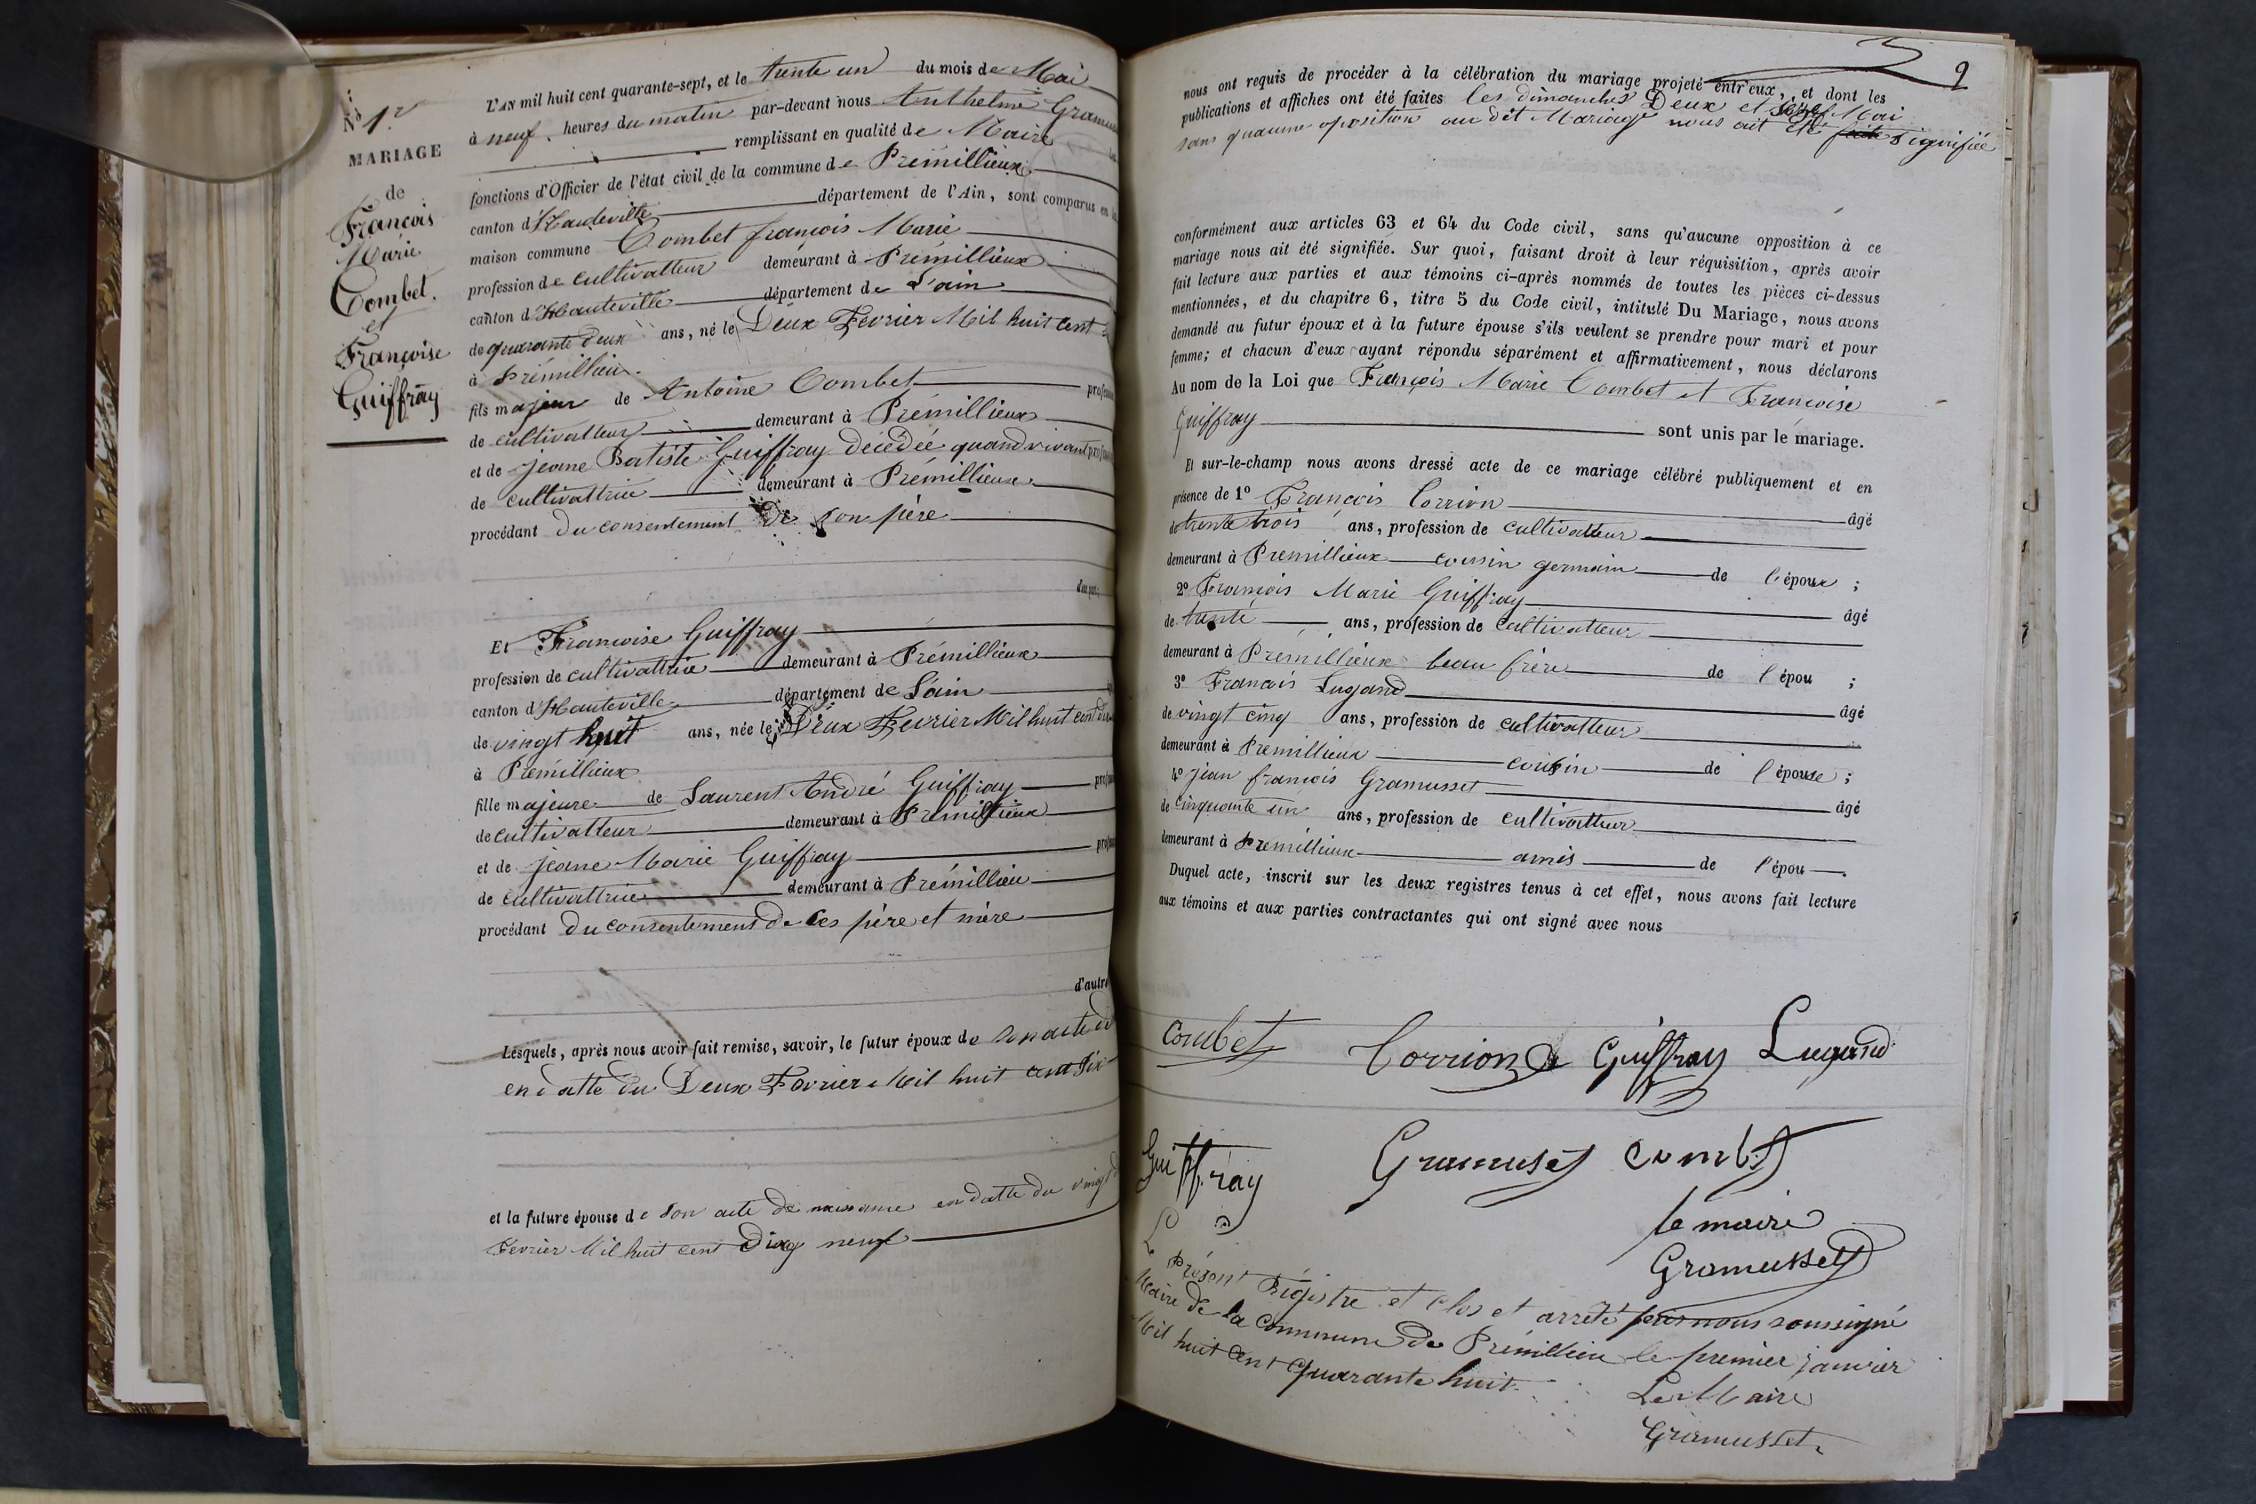 No 1er
MARIAGE
de
François
Marie
Combet.
et
Françoise
Guiffray
L'AN mil huit cent quarante-sept, et le trente un du mois de Mai
à neuf heures du matin par-devant nous Anthelme Gramus
remplissant en qualité de Maire
fonctions d'Officier de l'état civil de la commune de Prémillieux
canton d'Hauteville département de l'Ain, sont comparus en la
maison commune Combet françois Marie
profession de cultivatteur demeurant à Prémillieux
canton d'Hauteville département de L'ain
de quarante deux ans, né le Deux Fevrier Mil huit cent
à Prémillieu.
fils majeur de Antoine Combet profession
de cultivatteur demeurant à Prémillieux
et de jeane Batiste Guiffray décédée quand vivant
de cultivattrice demeurant à Prémillieux
procédant du consentement de son père
d'un part;
Et Francoise Guiffray
profession de cultivattrice demeurant à Prémillieux
canton d'Hauteville département de L'ain
de vingt huit ans, née le Deux Fevrier Mil huit cent
à Prémillieux
fille majeure de Laurent André Guiffray
de cultivatteur demeurant à Prémillieux
et de jeane Marie Guiffray
de cultivattrice demeurant à Prémillieu
procédant du consentement de ces père et mère
d'autre
Lesquels, après nous avoir fait remise, savoir, le futur époux de son acte de
en datte du Deux Fevrier Mil huit cent Six
et la future épouse de son acte de naissance en datte du vingt
Fevrier Mil huit cent dix neuf
9
nous ont requis de procéder à la célébration du mariage projeté entr'eux, et dont les
publications et affiches ont été faites les dimanches Deux et Mai
sans quaune oposition au dit Mariage nous ait été signifiée
conformément aux articles 63 et 64 du Code civil, sans qu'aucune opposition à ce
mariage nous ait été signifiée. Sur quoi, faisant droit à leur réquisition, après avoir
fait lecture aux parties et aux témoins ci-après nommés de toutes les pièces ci-dessus
mentionnées, et du chapitre 6, titre 5 du Code civil, intitulé Du Mariage, nous avons
demandé au futur époux et à la future épouse s'ils veulent se prendre pour mari et pour
femme; et chacun d'eux ayant répondu séparément et affirmativement, nous déclarons
Au nom de la Loi que François Marie Combet et Francoise
Guiffray sont unis par le mariage.
Et sur-le-champ nous avons dressé acte de ce mariage célébré publiquement et en
présence de 1º François Corrion âgé
de trente trois ans, profession de cultivatteur
demeurant à Premillieux cousin germain de l'époux ;
2º François Marie Guiffray âgé
de trente ans, profession de cultivatteur
demeurant à Premillieux beau frère de l'épou ;
3º Francois Lugand âgé
de vingt cinq ans, profession de cultivatteur
demeurant à Premillieux cousin de l'épouse ;
4º jean françois Gramusset âgé
de cinquante un ans, profession de cultivatteur
demeurant à Premillieux amis de l'épou
Duquel acte, inscrit sur les deux registres tenus à cet effet, nous avons fait lecture
aux témoins et aux parties contractantes qui ont signé avec nous
Combet Corrion Guiffray Lugand
Guiffray Gramuset combet
le maire
Gramusset
Le Présent Régistre et clos et arrêté par nous soussigné
Maire de la Commune de Prémillieu le premier janvier
Mil huit cent quarante huit.
Le Maire
Gramusset